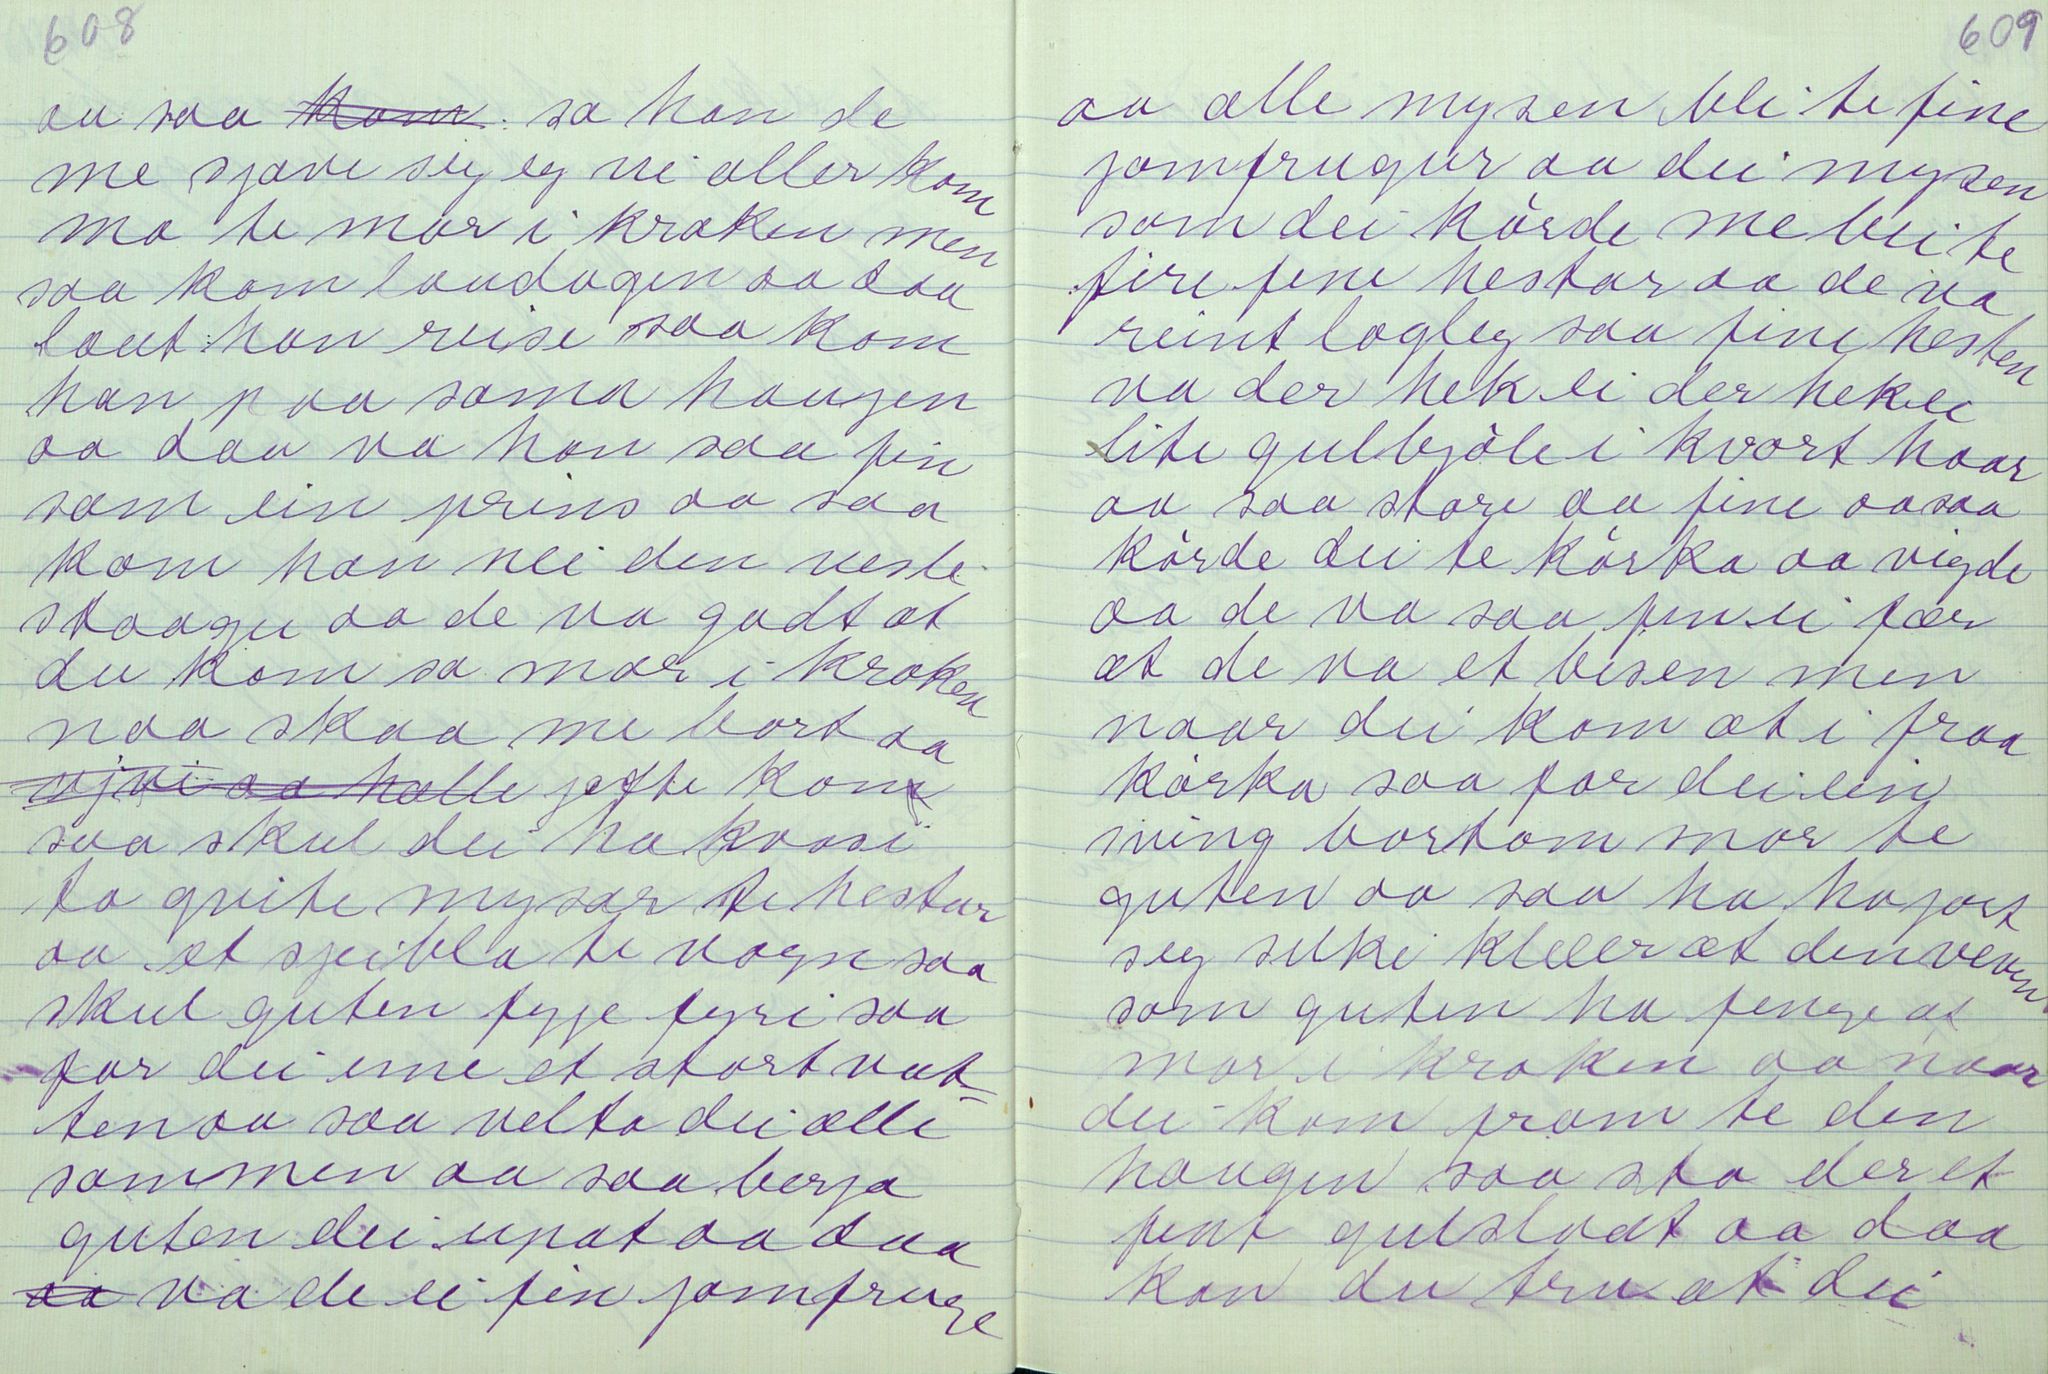 608
aa saa kom. sa han de
me sjave sig eg vi aller kom
ma te mor i kraken men
saa kom laudagen aa daa
laut han reise saa kom
han paa sama haugen
aa daa va han saa fin
som ein prins aa saa
kom han nei den vesle
staagu aa de va godt at
du kom sa mor i kraken
naa skaa me bort aa
aa halle jefte kom
saa skul dei ha
ta qvite mysar te hestar
aa et sjeibla te vogn saa
skul guten fyje fyri saa
for dei ine et stort vat-
ten aa saa velta dei alle
sammen aa saa berja
guten dei upat aa daa
aa va de ei fin jomfruge
609
aa alle mysen blei te fine
jomfrugur aa dei mysen
som dei körde me blei te
fire fine hestar aa de va
reint logleg saa fine hesten
va der hek ei der hek ei
lite gulbjöle i kvart haar
aa saa store aa fine aa saa
körde dei te körka aa vigde
aa de va saa fin ei fær
at de va et besen men
naar dei kom at i fraa
körka saa for dei ein
sving bortom mor te
guten aa saa ha ho jort
seg silke kleer at den veven
som guten ha fenge at
mor i kraken aa naar
dei kom fram te den
haugen saa sto der et
fint gulslodt aa daa
kan du tru at dei